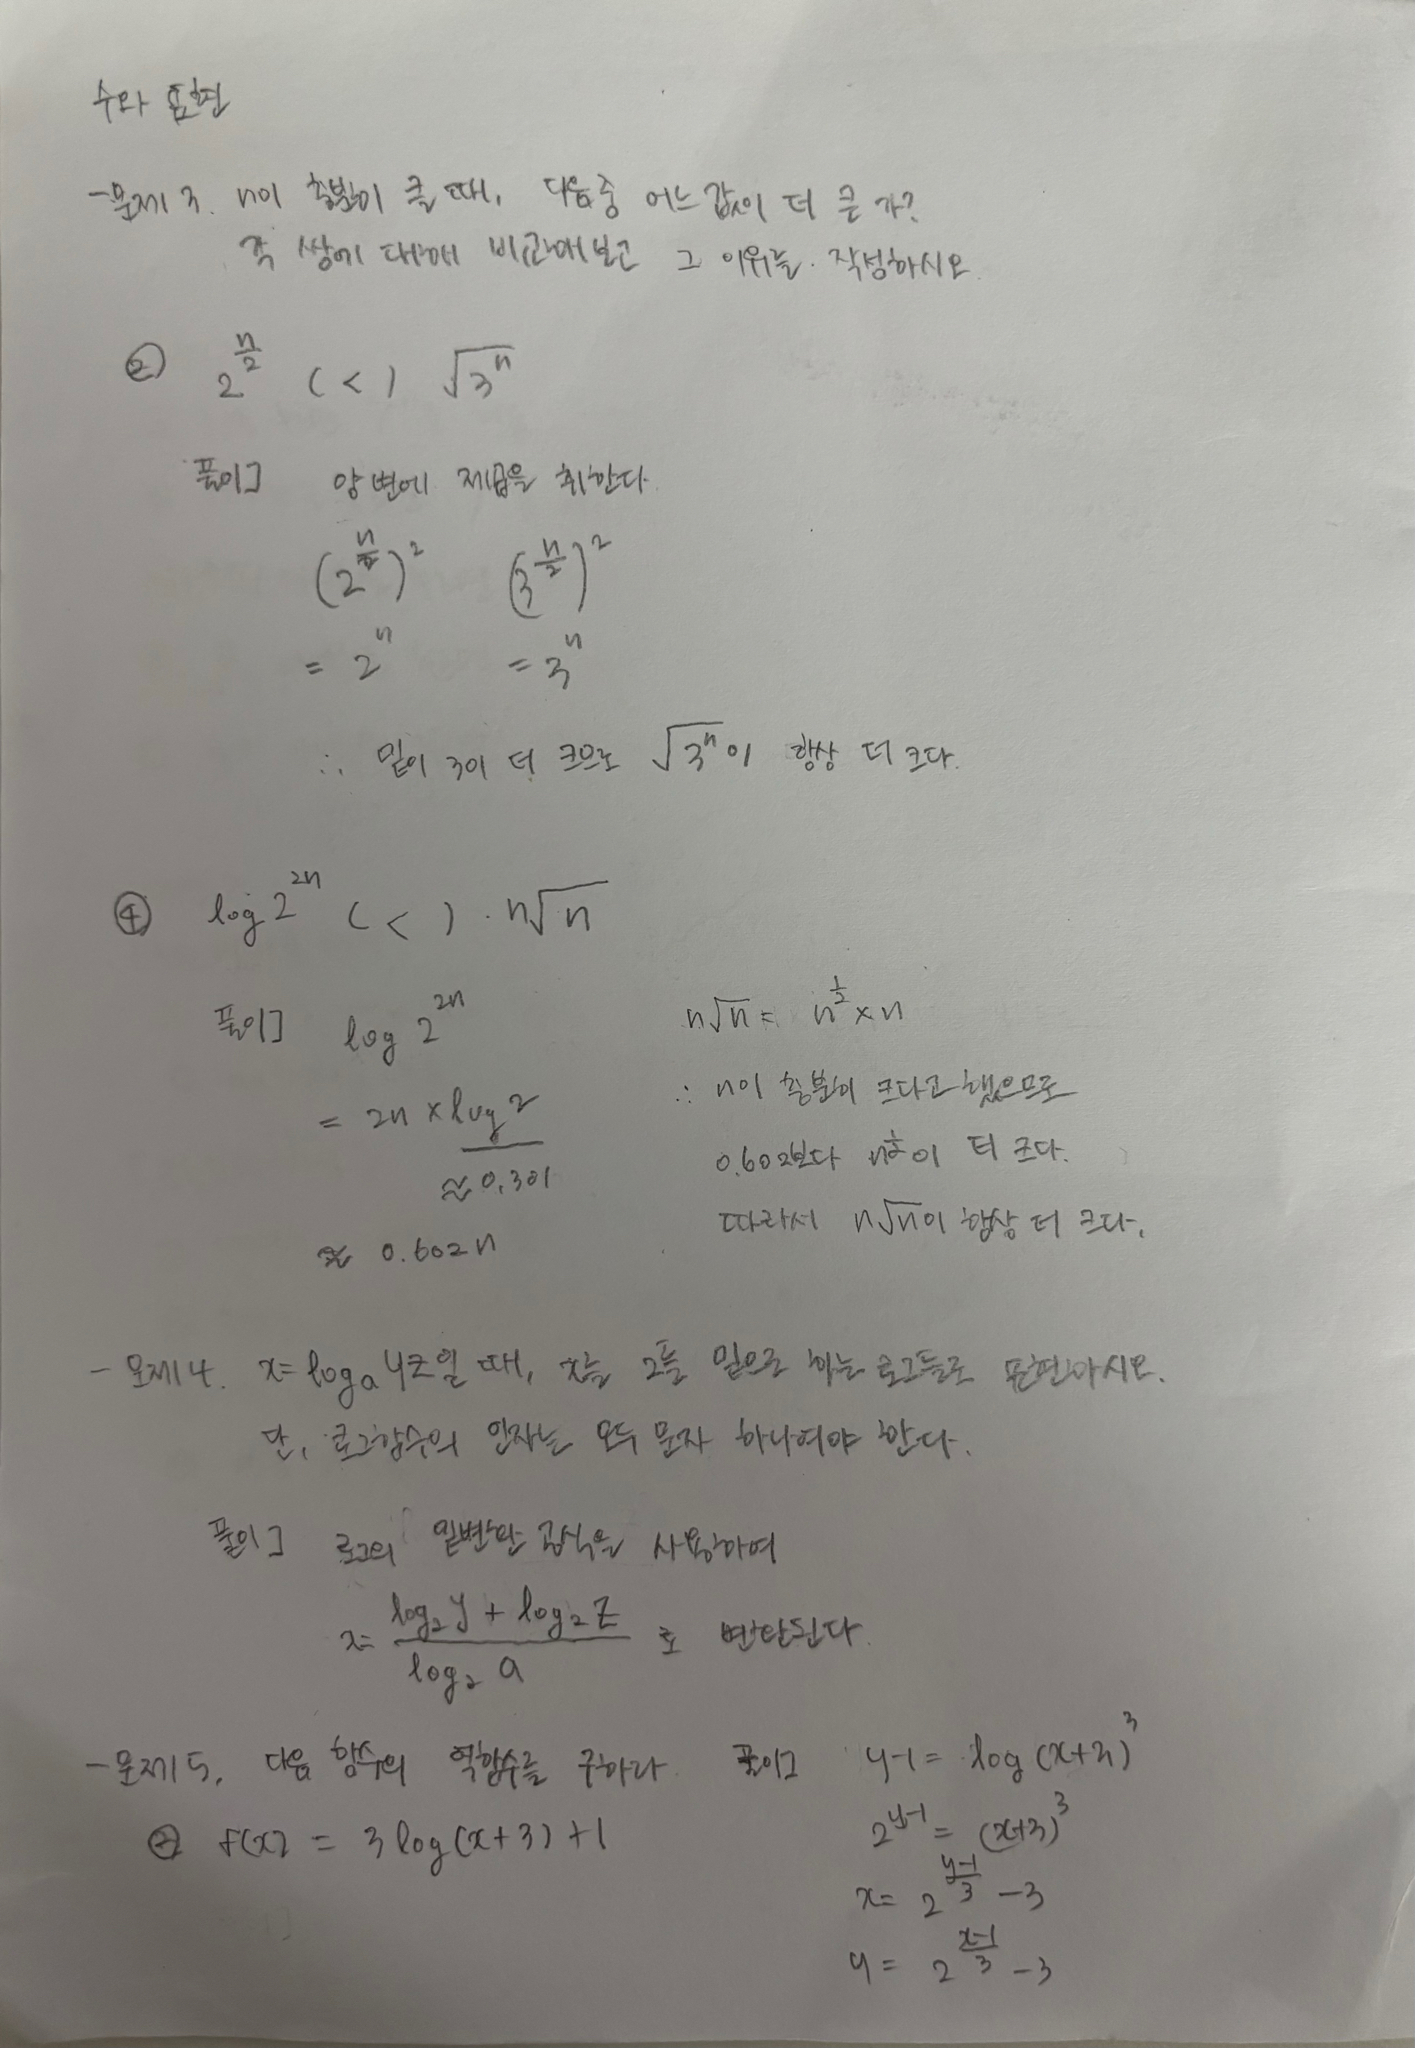 수와 표현
- 문제 3. n이 충분히 클 때, 다음 중 어느 값이 더 큰가?
각 쌍에 대해 비교해보고 그 이유를 작성하시오.
② 2^(n/2) (<) √(3^n)
풀이] 양변에 제곱을 취한다.
(2^(n/2))^2 (3^(n/2))^2
= 2^n = 3^n
∴ 밑이 3이 더 크므로 √(3^n)이 항상 더 크다.
④ log 2^(2n) (<) n√n
풀이] log 2^(2n)
= 2n × log 2
≈ 0.301
≈ 0.602n
n√n = n^(1/2) × n
∴ n이 충분히 크다고 했으므로
0.602보다 n^(1/2)이 더 크다.
따라서 n√n이 항상 더 크다.
- 문제 4. x = log_a yz일 때, x를 2를 밑으로 하는 로그들로 표현하시오.
단, 로그함수의 인자는 모두 문자 하나여야 한다.
풀이] 로그의 밑변환 공식을 사용하여
x = (log_2 y + log_2 z) / (log_2 a) 로 변환된다.
- 문제 5. 다음 함수의 역함수를 구하라
② f(x) = 3 log (x+3) + 1
풀이] y-1 = log (x+3)^3
2^(y-1) = (x+3)^3
x = 2^((y-1)/3) - 3
y = 2^((x-1)/3) - 3